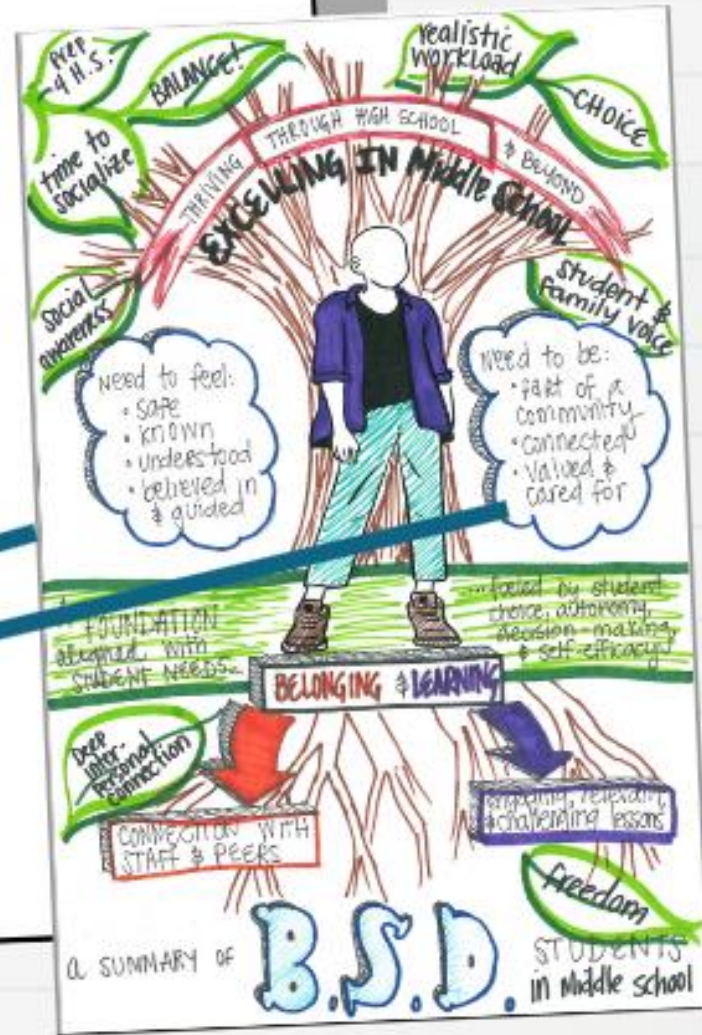 Prep
4 H.S.
BALANCE!
realistic
workload
CHOICE
time to
socialize
THRIVING
THROUGH HIGH SCHOOL
& BEYOND
EXCELLING IN Middle School
Social
awareness
Student &
Family voice
Need to feel:
• safe
• known
• understood
• believed in
& guided
Need to be:
• part of a
community
• connected
• valued &
cared for
FOUNDATION
aligned with
STUDENT NEEDS...
...fueled by student
choice, autonomy,
decision-making,
& self-efficacy
BELONGING & LEARNING
Deep
Inter-
Personal
connection
CONNECTION WITH
STAFF & PEERS
engaging, relevant,
& challenging lessons
freedom
a SUMMARY OF
B.S.D.
STUDENTS
in Middle school